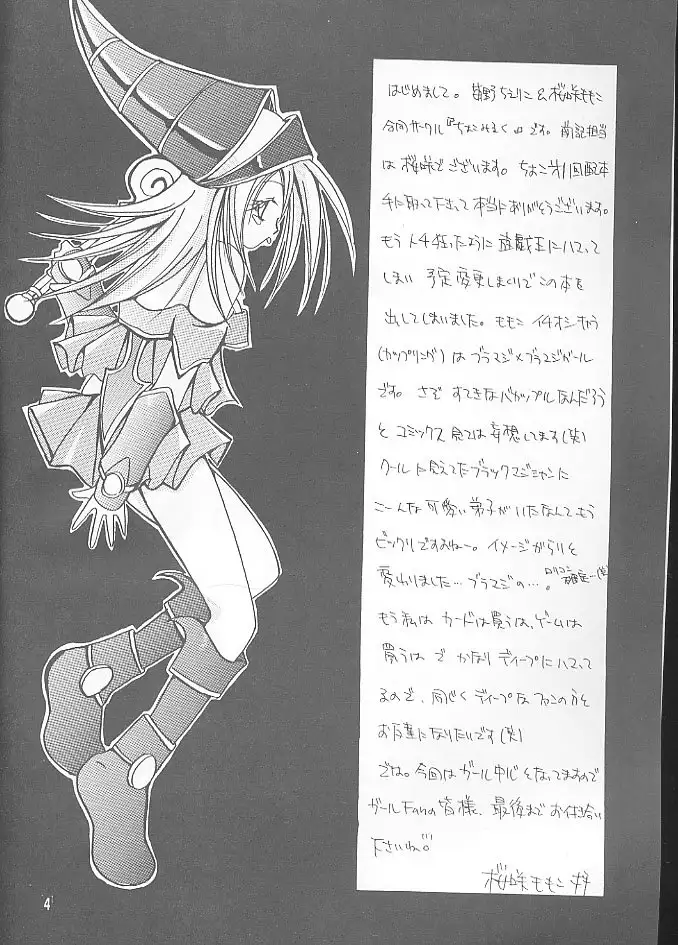 はじめまして。姫野ちえりこ&桜咲ももこ
合同サークル『ちょこみるく』です。前記担当
は桜咲でございます。ちょこオ1回配本
手に取って下さって本当にありがとうございます。
もう人生狂ったように遊戯王にハマって
しまい予定変更しまくりでこの本を
出してしまいました。ももこイチオシキャラ
(カップリング)はブラマジ×ブラマジガール
です。さぞすてきなバカップルなんだろう
とコミックス見ては妄想してます(笑)
クールに見えてたブラックマジシャンに
こーんな可愛い弟子がいたなんてもう
ビックリですよねー。イメージがらりと
変わりました…ブラマジの…。ロリコン確定…(笑)
もう私はカードは買うは、ゲームは
買うはでかなりディープにハマって
るので、同じくディープなファンの方と
お友達になりたいです(笑)
でわ。今回はガール中心となってますので
ガールFanの皆様、最後までお付き合い
下さいね。
桜咲ももこ
4